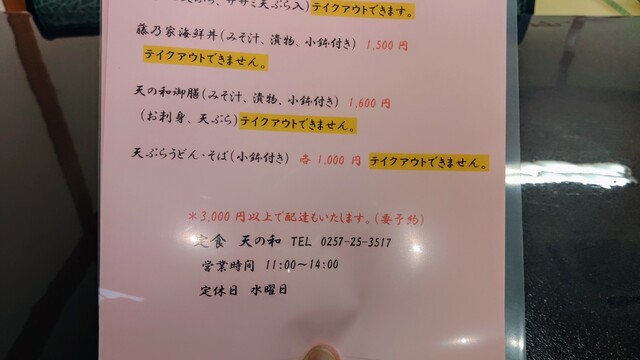 ササミ天ぷら入)テイクアウトできます。
藤乃家海鮮丼(みそ汁、漬物、小鉢付き) 1,500 円
テイクアウトできません。
天の和御膳(みそ汁、漬物、小鉢付き) 1,600 円
(お刺身、天ぷら)テイクアウトできません。
天ぷらうどん・そば(小鉢付き) 各 1,000 円 テイクアウトできません。
*3,000 円以上で配達もいたします。(要予約)
定食 天の和 TEL 0257-25-3517
営業時間 11:00~14:00
定休日 水曜日